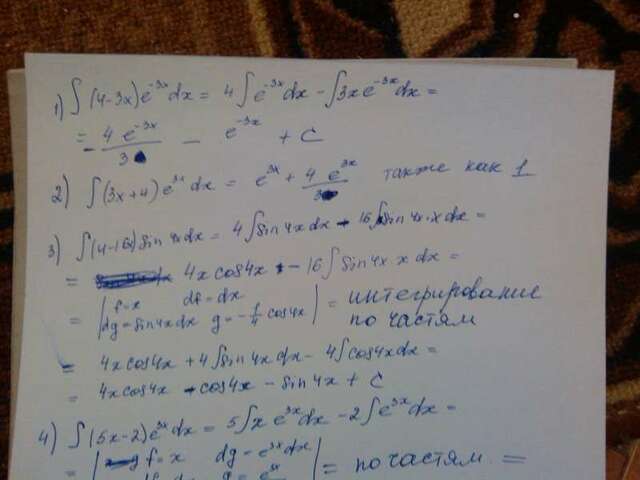 1) ∫(4-3x)e^{-3x}dx = 4∫e^{-3x}dx - ∫3xe^{-3x}dx =
= -4e^{-3x}/3 - e^{-3x} + C
2) ∫(3x+4)e^{3x}dx = e^{3x} + 4e^{3x}/3 также как 1
3) ∫(4-16x)sin4xdx = 4∫sin4xdx - 16∫sin4x·xdx =
= 4xcos4x - 16∫sin4x x dx =
= |f=x df=dx
dg=sin4xdx g=-1/4 cos4x| = интегрирование по частям
= 4xcos4x + 4∫sin4xdx - 4∫cos4xdx =
= 4xcos4x - cos4x - sin4x + C
4) ∫(5x-2)e^{3x}dx = 5∫xe^{3x}dx - 2∫e^{3x}dx =
= | f=x dg=e^{3x}dx | = по частям =